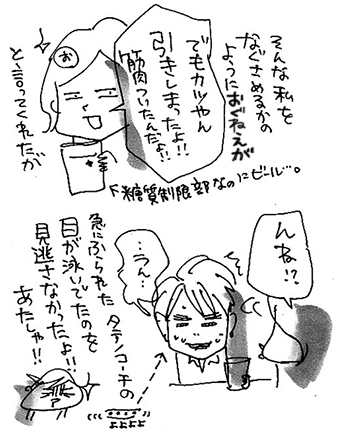 そんな私を
なぐさめるかの
ようにおぐねえが
でもカツやん
引きしまったよ!!
筋肉ついたんだよ!!
と言ってくれたが
お
↑糖質制限部なのにビール…。
んね!?
…うん…
急にふられた タテノコーチの
目が泳いでたのを
見逃さなかったよ!!
あたしゃ!!